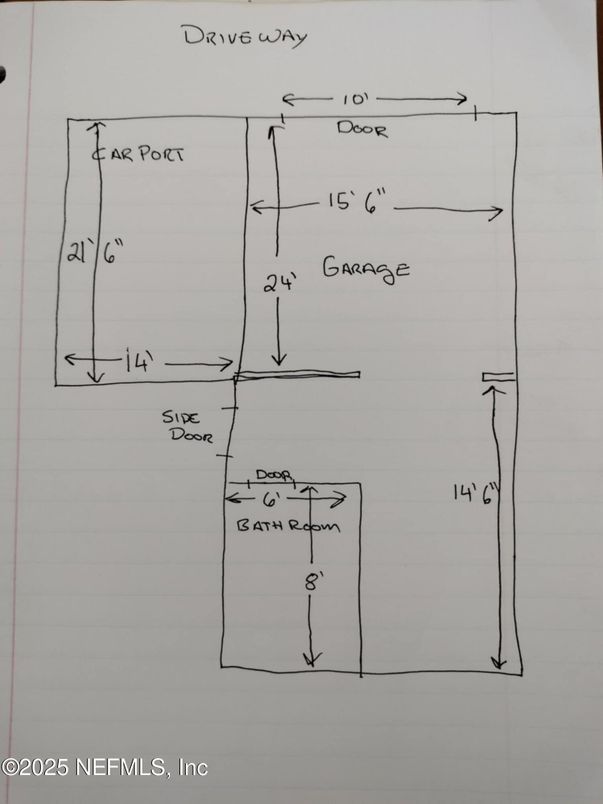 DRIVEWAY
10'
DOOR
CARPORT
15' 6"
21' 6"
GARAGE
24'
14'
SIDE
DOOR
DOOR
6'
14' 6"
BATHROOM
8'
©2025 NEFMLS, Inc